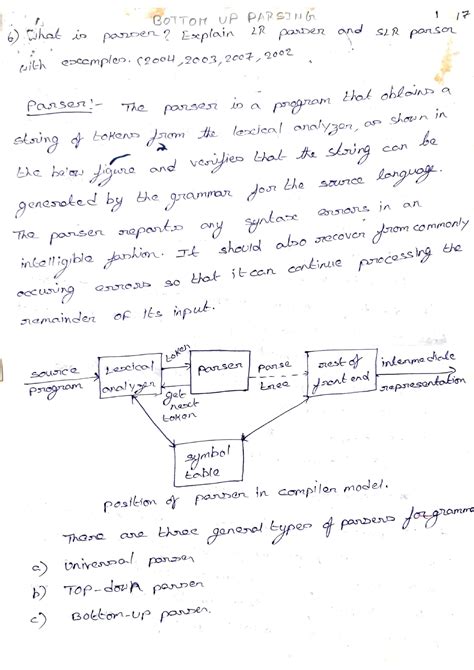 BOTTOM UP PARSING
17
6) What is parser? Explain LR parser and SLR parser
with examples. (2004, 2003, 2007, 2002
Parser:- The parser is a program that obtains a
string of tokens from the lexical analyzer, as shown in
the below figure and verifies that the string can be
generated by the grammar for the source language.
The parser reports any syntax errors in an
intelligible fashion. It should also recover from commonly
occuring errors so that it can continue processing the
remainder of its input.
source
program
Lexical
analyzer
token
get
next
token
parser
parse
tree
rest of
front end
intermediate
representation
symbol
table
position of parser in compiler model.
There are three general types of parsers for gramma
a) Universal parser
b) TOP-down parser
c) Bottom-up parser.